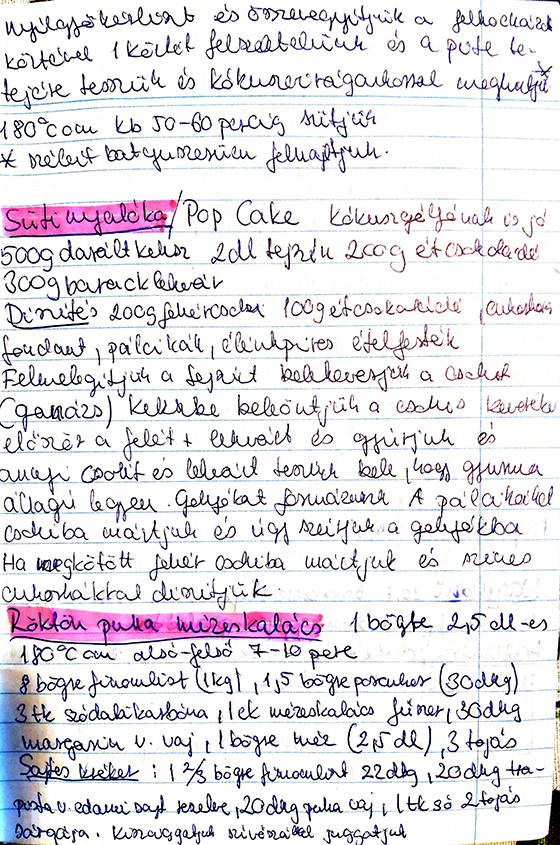 nyílgyökérliszt és összevegyítjük a felkockázott
körtével 1 körtét felszeletelünk és a pite te-
tejére tesszük és kókuszvirágcukorral meghintjük*
180°C on kb 50-60 percig sütjük
* széleit batyuszerűen felhajtjuk.
Süti nyalóka / Pop Cake Kókuszgolyónak is jó
500g darált keksz 2dl tejszín 200g étcsokoládé
300g baracklekvár
Díszítés 200g fehércsoki 100g étcsokoládé, cukorka
fondant, pálcikák, élénkpiros ételfesték
Felmelegítjük a tejszínt belekeverjük a csokit
(ganázs) Kekszbe beleöntjük a csokis keveréket
először a felét + lekvárt és gyúrjuk és
annyi csokit és lekvárt teszünk bele, hogy gyurma
állagú legyen. Golyókat formázunk A pálcikákat
csokiba mártjuk és úgy szúrjuk a golyókba
Ha megkötött fehér csokiba mártjuk és színes
cukorkákkal díszítjük
Röktön puha mézeskalács 1 bögre 2,5 dl-es
180°C on alsó-felső 7-10 perc
8 bögre finomliszt (1kg), 1,5 bögre porcukor (30dkg)
3 tk szódabikarbóna, 1 ek mézeskalács fűszer, 30dkg
margarin v. vaj, 1 bögre méz (2,5 dl), 3 tojás
Sajtos keksz: 1 2/3 bögre finomliszt 22dkg, 20dkg tra-
pista v. edami sajt reszelve, 20dkg puha vaj, 1 tk só 2 tojás
sárgája. Kiszaggatjuk szívószállal juggatjuk